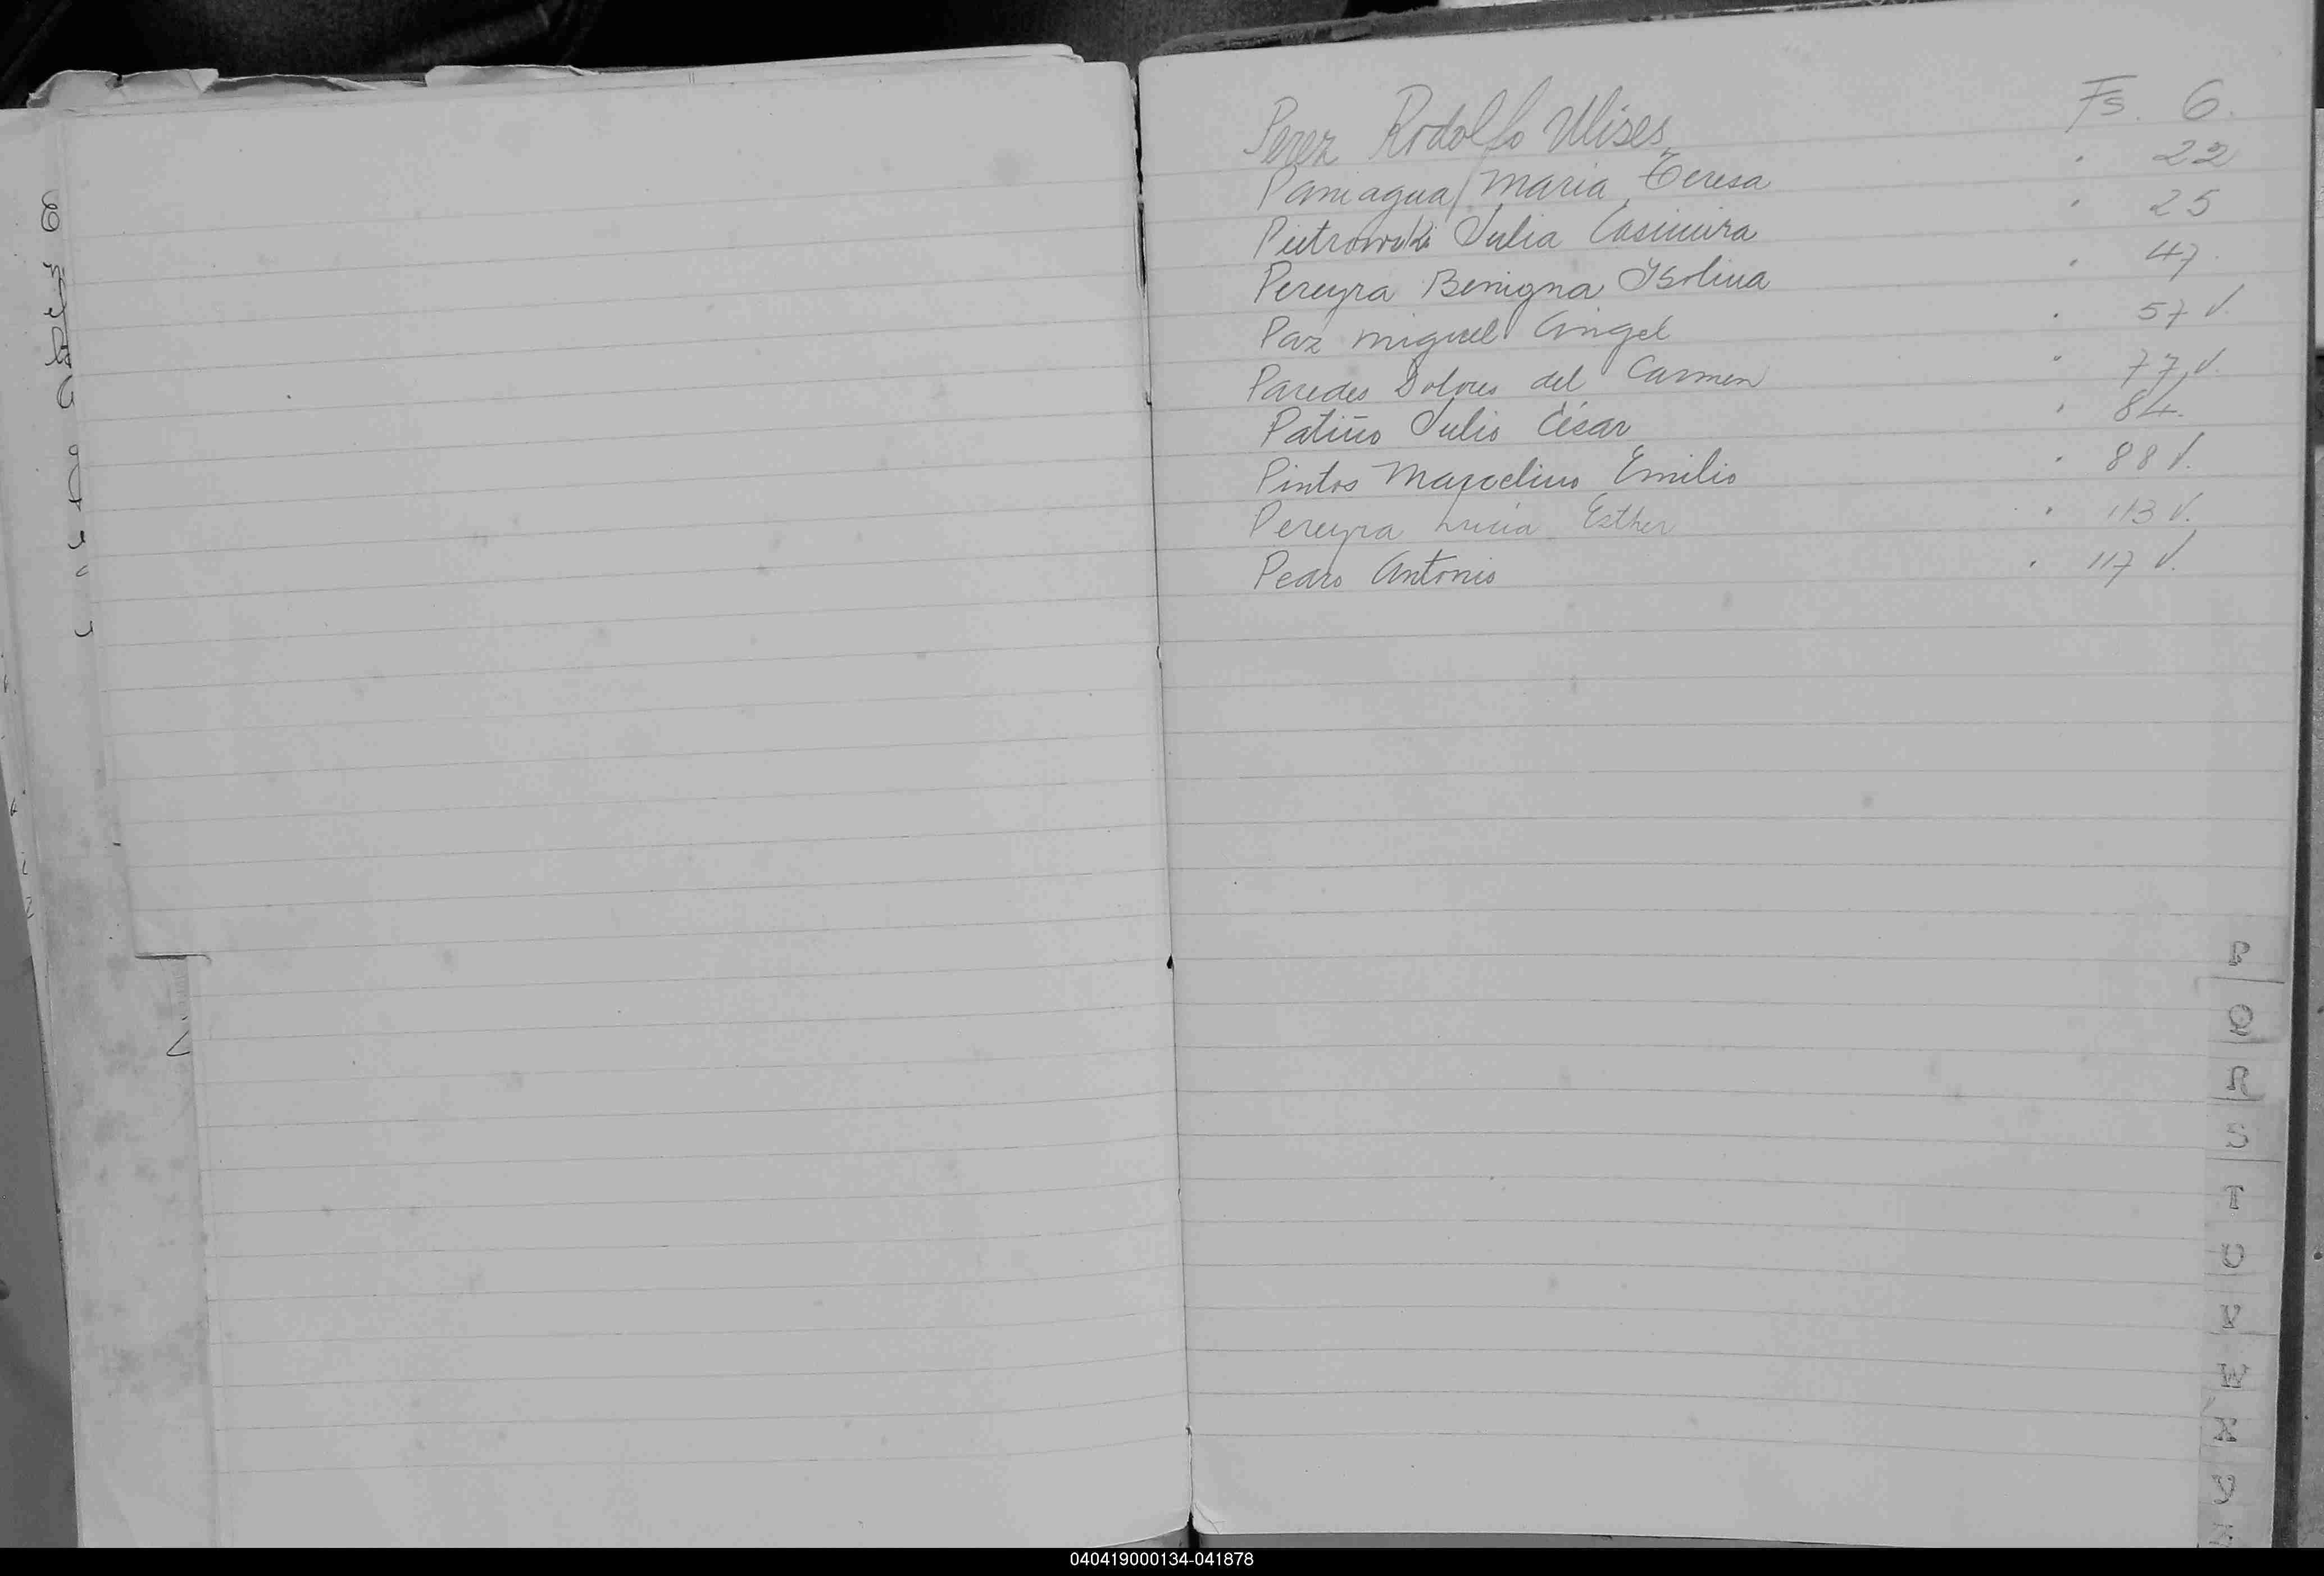 Perez Rodolfo Ulises Fs. 6.
Paniagua Maria Teresa " 22
Pietrowski Julia Casimira " 25
Pereyra Benigna Ysolina " 47.
Paz Miguel Angel " 57 v.
Paredes Dolores del Carmen " 77 v.
Patiño Julio César " 84.
Pintos Marcelino Emilio " 88 v.
Pereyra Lucia Esther " 113 v.
Pedro Antonio " 117 v.
P
Q
R
S
T
U
V
W
X
Y
040419000134-041878